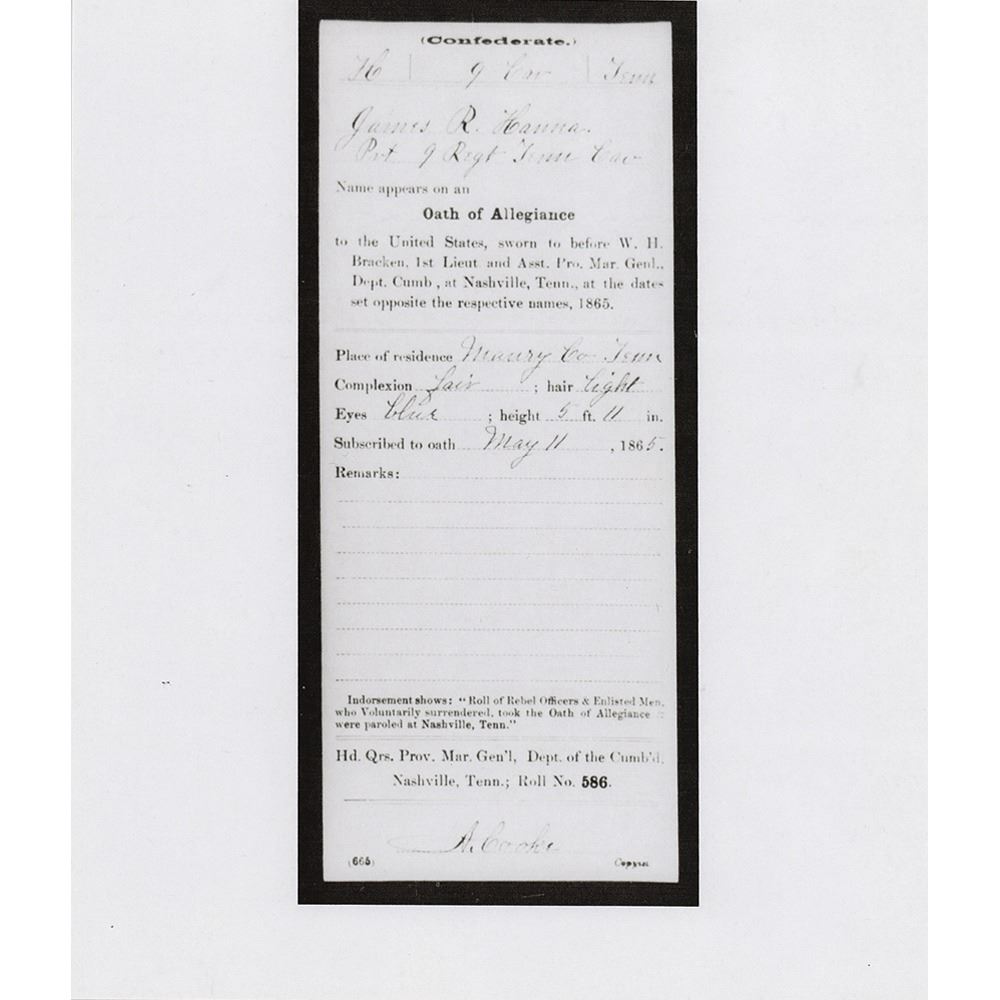 (Confederate.)
H | 9 Cav | Tenn
James R. Hanna.
Pvt 9 Regt Tenn Cav
Name appears on an
Oath of Allegiance
to the United States, sworn to before W. H.
Bracken, 1st Lieut and Asst. Pro. Mar. Genl.,
Dept. Cumb, at Nashville, Tenn., at the dates
set opposite the respective names, 1865.
Place of residence Maury Co Tenn
Complexion fair ; hair light
Eyes blue ; height 5 ft. 11 in.
Subscribed to oath May 11, 1865.
Remarks:
Indorsement shows: "Roll of Rebel Officers & Enlisted Men,
who Voluntarily surrendered, took the Oath of Allegiance
were paroled at Nashville, Tenn."
Hd. Qrs. Prov. Mar. Gen'l, Dept. of the Cumb'd,
Nashville, Tenn.; Roll No. 586.
A. Cooke
(665) Copyist.